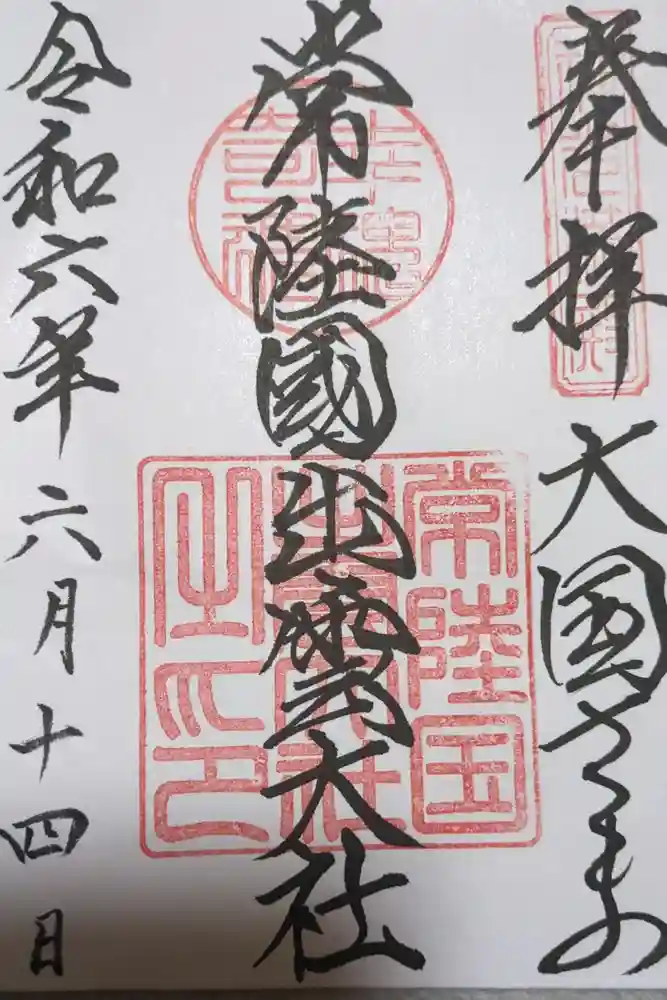 奉拝 大国さま
常陸國出雲大社
常陸国
出雲大社
之印
令和六年六月十四日